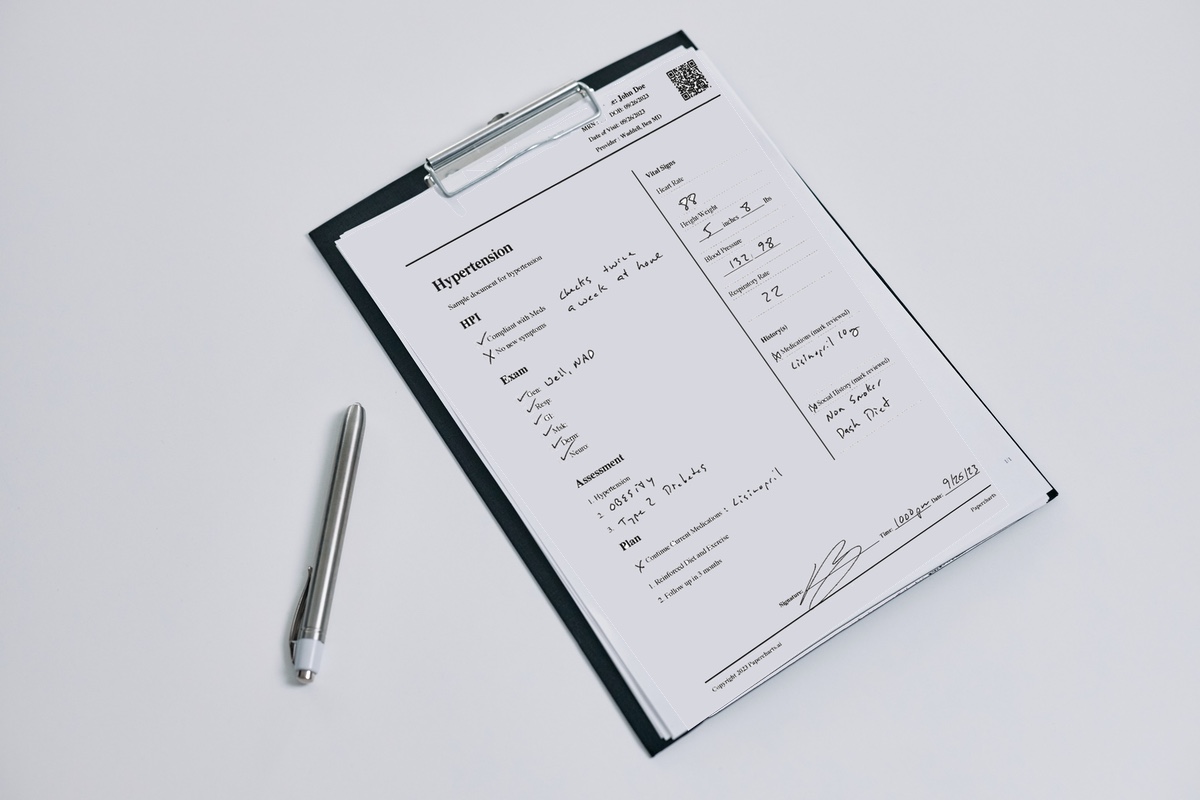 John Doe
MRN DOB: 09/26/2023
Date of Visit: 09/26/2023
Provider - Waddell, Ben MD
Hypertension
Sample document for hypertension
HPI
Compliant with Meds
No new symptoms
checks twice
a week at home
Exam
Gen: Well, NAD
Resp:
GI:
Msk:
Derm:
Neuro:
Assessment
1. Hypertension
2. OBESITY
3. Type 2 Diabetes
Plan
Continue Current Medications: Lisinopril
1. Reinforced Diet and Exercise
2. Follow up in 3 months
Vital Signs
Heart Rate
88
Height/Weight
5 inches 8 lbs
Blood Pressure
132, 98
Respiratory Rate
22
History(s)
Medications (mark reviewed)
Lisinopril 10g
Social History (mark reviewed)
Non Smoker
Dash Diet
1/1
Signature: Time: 1000pm Date: 9/26/23
Copyright 2023 Papercharts.ai
Papercharts